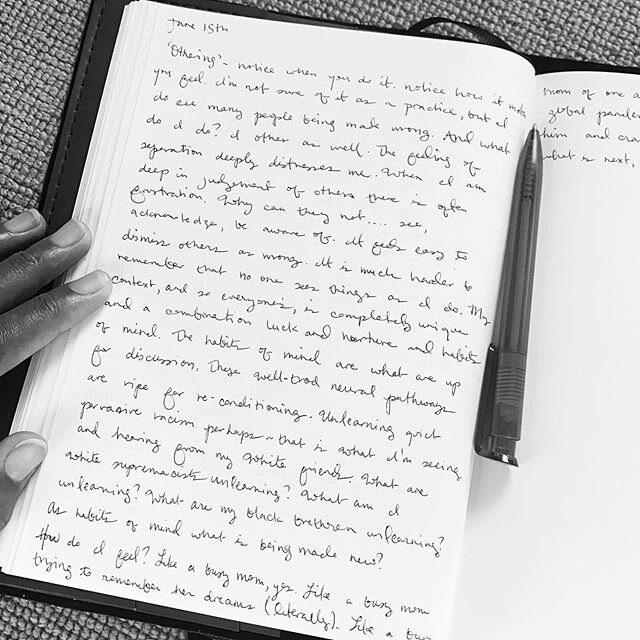 June 15th
"Othering" - notice when you do it. notice how it makes
you feel. I'm not sure of it as a practice, but I
do see many people being made wrong. And what
do I do? I other as well. The feeling of
separation deeply distresses me. When I am
deep in judgement of others there is often
frustration. Why can they not.... see,
acknowledge, be aware of. It feels easy to
dismiss others as wrong. It is much harder to
remember that no one sees things as I do. My
context, and so everyone's, is completely unique
and a combination luck and nurture and habits
of mind. The habits of mind are what are up
for discussion. These well-trod neural pathways
are ripe for re-conditioning. Unlearning quiet
pervasive racism perhaps ~ that is what I'm seeing
and hearing from my white friends. What are
white supremacists unlearning? What am I
unlearning? What are my black brethren unlearning?
As habits of mind what is being made new?
How do I feel? Like a busy mom, yes. Like a busy mom
trying to remember her dreams (literally). Like a busy
mom of one a
global pandem
him and cra
what is next,